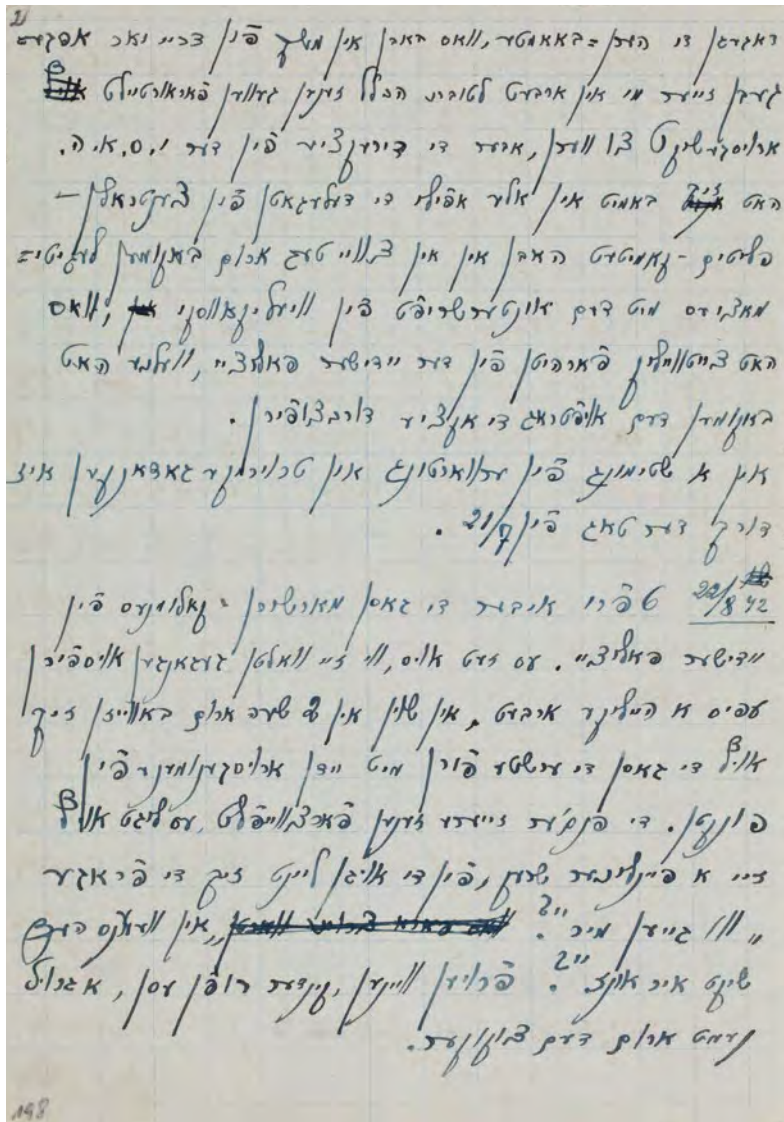 21
דאגעגן די הען=באאמטע, וואס האבן אין משך פֿון דריי יאר אפגע=
געבן זייער מי אין ארבעט לטובת הכלל זענען געווען פֿאראורטיילט
ארויסגעשיקט צו ווערן, אבער די דירעקציע פֿון דער י.ס.א.ה.
האט זיך באמיט אין אלע אפילו די דעלעגאטן פֿון צענטראלן —
פליטים-קאמיטעט האבן אין אין צוויי טעג ארום באקומען לעגיטי=
מאציעס מיט דעם אונטערשריפֿט פֿון וויעליקאווסקי, וואס
האט צייטווייליק פֿארהיטן פֿון דער יידישער פאליציי, וועלכע האט
באקומען דעם אויפֿטראג די אקציע דורכצופֿירן.
אין א שטימונג פֿון ערווארטונג אין טרויעריקע געדאנקען איז
דורך דער טאג פֿון 21/7.
22/8 42 טפרו איבער די גאסן מארשירן קאלומנעס פֿון
יידישער פאליציי. עס זעט אויס, ווי זיי וואלטן געגאנגען אויספֿירן
עפיס א היילינקע ארבעט, אין שוין אין 2 שעה ארום באווייזן זיך
אויף די גאסן די ערשטע פֿורן מיט יידן ארויסגענומענע פֿין
פונקטן. די פנים'ער זייערע זענען פֿארצווייפֿלט, עס ליגט אויף
זיי א פיינליכער שרעק, פֿין די אויגן לייגט זיך די פֿראגע
„ווו גייען מיר?" „אין וועלכס העק
שיקט איר אונז?" פֿרויען וויינען, קינדער רופֿן עסן, א גרויל
נעמט ארום דעם צוקוקער.
198